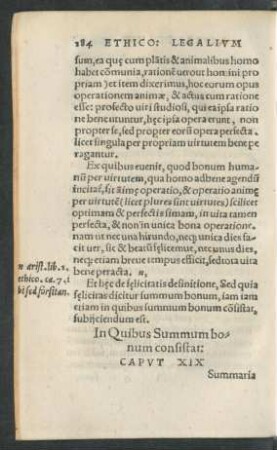 184 ETHICO: LEGALIVM
sum, ea quę cum plātis & animalibus homo
habet cōmunia, rationē uero ut homini pro
priam) et item dixerimus, hoc eorum opus
operationem animæ, & actus cum ratione
esse: profecto uiri studiosi, qui ea ipsa ratio
ne bene utuntur, hęc ipsa opera erunt, non
propter se, sed propter eorū opera perfecta.
licet singula per propriam uirtutem bene pe
ragantur.
Ex quibus euenit, quod bonum huma
nū per uirtutem, qua homo ad bene agendū
incitat, sit aīmę operatio, & operatio animę
per uirtutē (licet plures sint uirtutes) scilicet
optimam & perfectissimam, in uita tamen
perfecta, & nō in unica bona operatione.
nam ut nec una hirundo, nec unica dies fa-
cit uer, sic & beatū felicemue, nec unus dies,
nec etiam breue tempus efficit, sed tota uita
bene peracta. n,
n arist. lib. 1.
ethico. ca. 7. i
bi sed forsitan.
Et hęc de felicitatis definitione, Sed quia
felicitas dicitur summum bonum, iam iam
etiam in quibus summum bonum cōsistat,
subijciendum est.
In Quibus Summum bo-
num consistat:
CAPVT XIX
Summaria